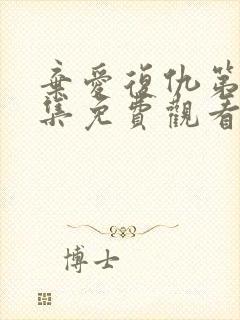 棄愛復仇第
集免費觀看
博士